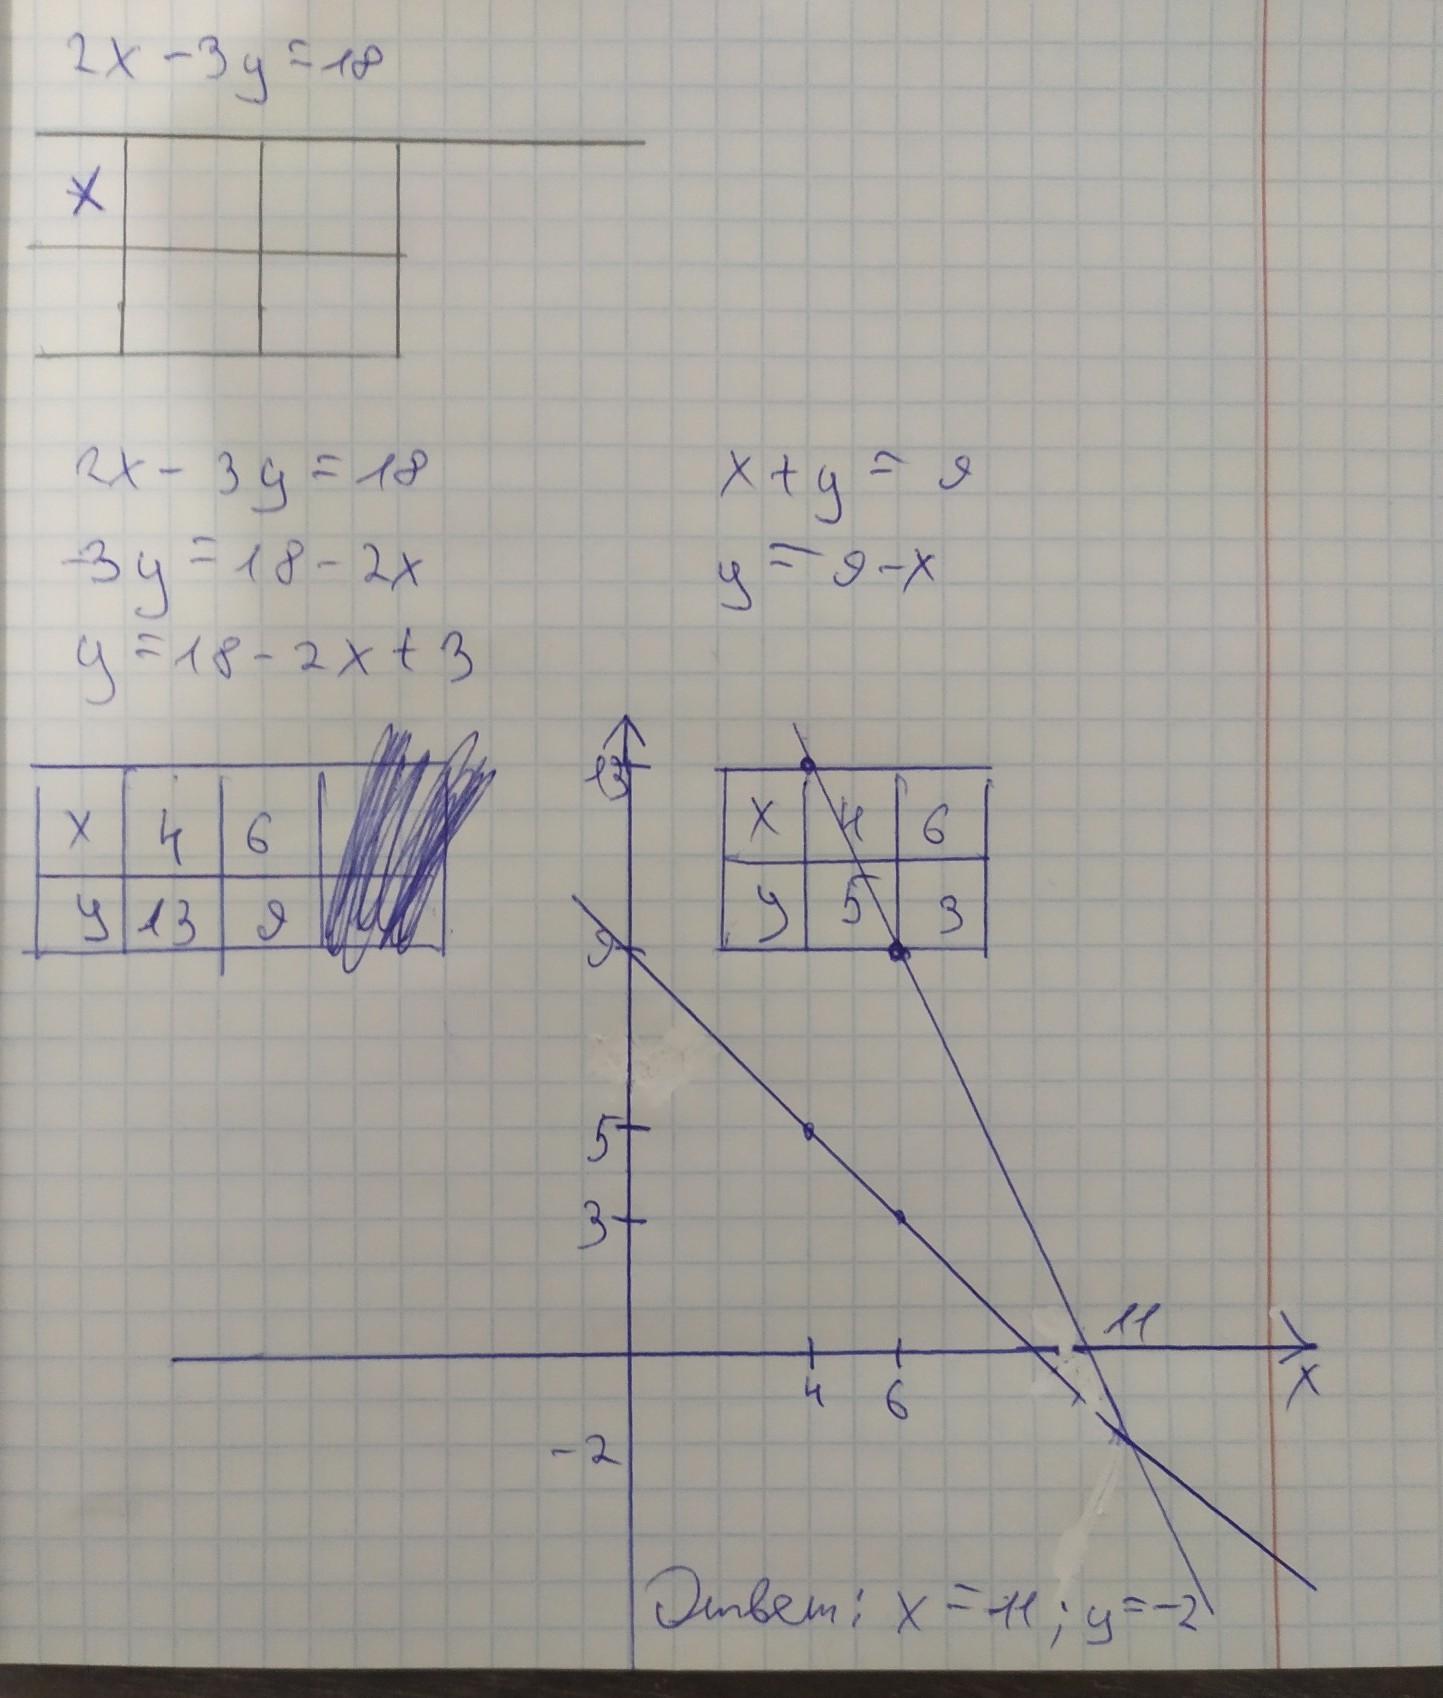 2x - 3y = 18
x
2x - 3y = 18
-3y = 18 - 2x
y = 18 - 2x + 3
x + y = 9
y = 9 - x
x 4 6
y 13 9
x 4 6
y 5 3
13
9
5
3
11
4 6 x
-2
Ответ: x = 11; y = -2